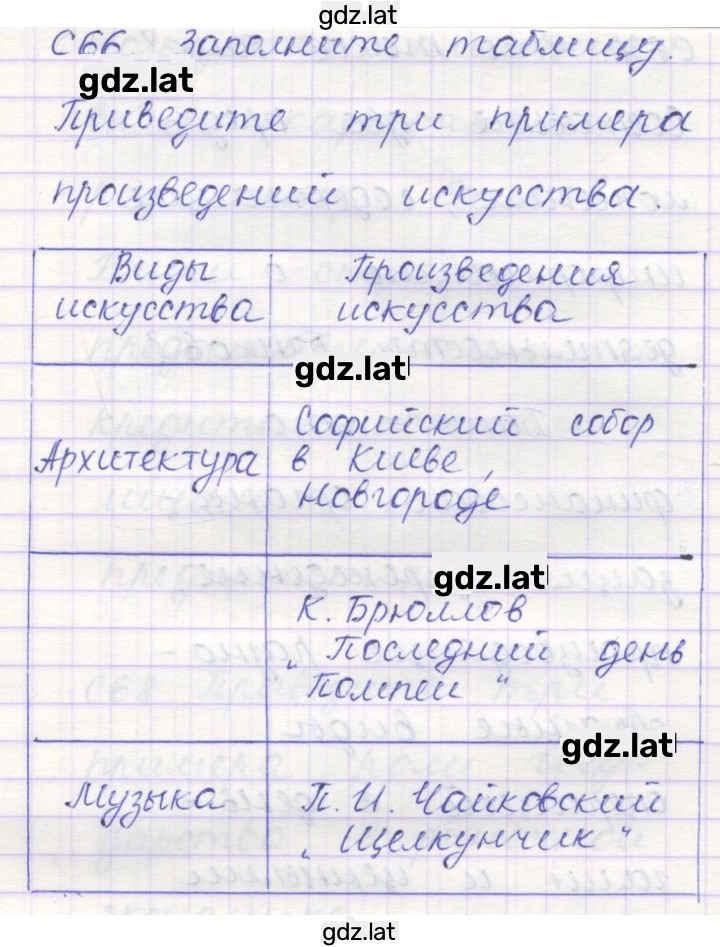 gdz.lat
С66. Заполните таблицу.
gdz.lat
Приведите три примера
произведений искусства.
Виды искусства
Произведения искусства
gdz.lat
Архитектура
Софийский собор
в Киеве,
Новгороде
gdz.lat
К. Брюллов
„Последний день
Помпеи“
gdz.lat
Музыка
П. И. Чайковский
„Щелкунчик“
gdz.lat